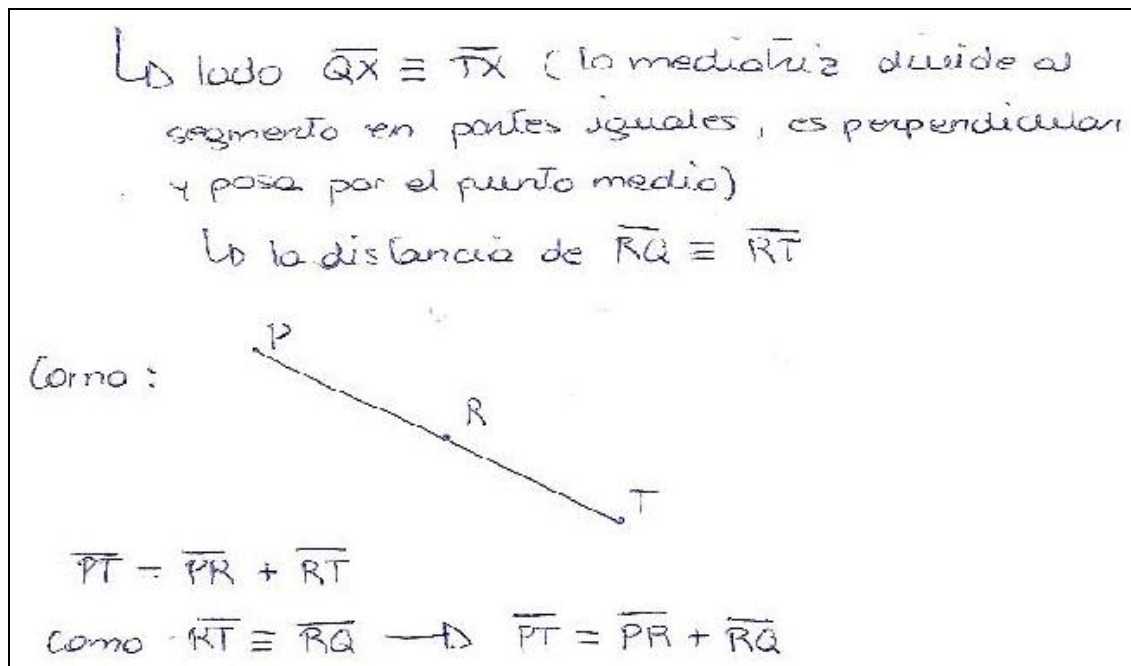 ↳ lado $\overline{QX} \equiv \overline{TX}$ (la mediatriz divide al
segmento en partes iguales, es perpendicular
y pasa por el punto medio)
↳ la distancia de $\overline{RQ} \equiv \overline{RT}$
P
Como:
R
T
$\overline{PT} = \overline{PR} + \overline{RT}$
como $\overline{RT} \equiv \overline{RQ}$ → $\overline{PT} = \overline{PR} + \overline{RQ}$